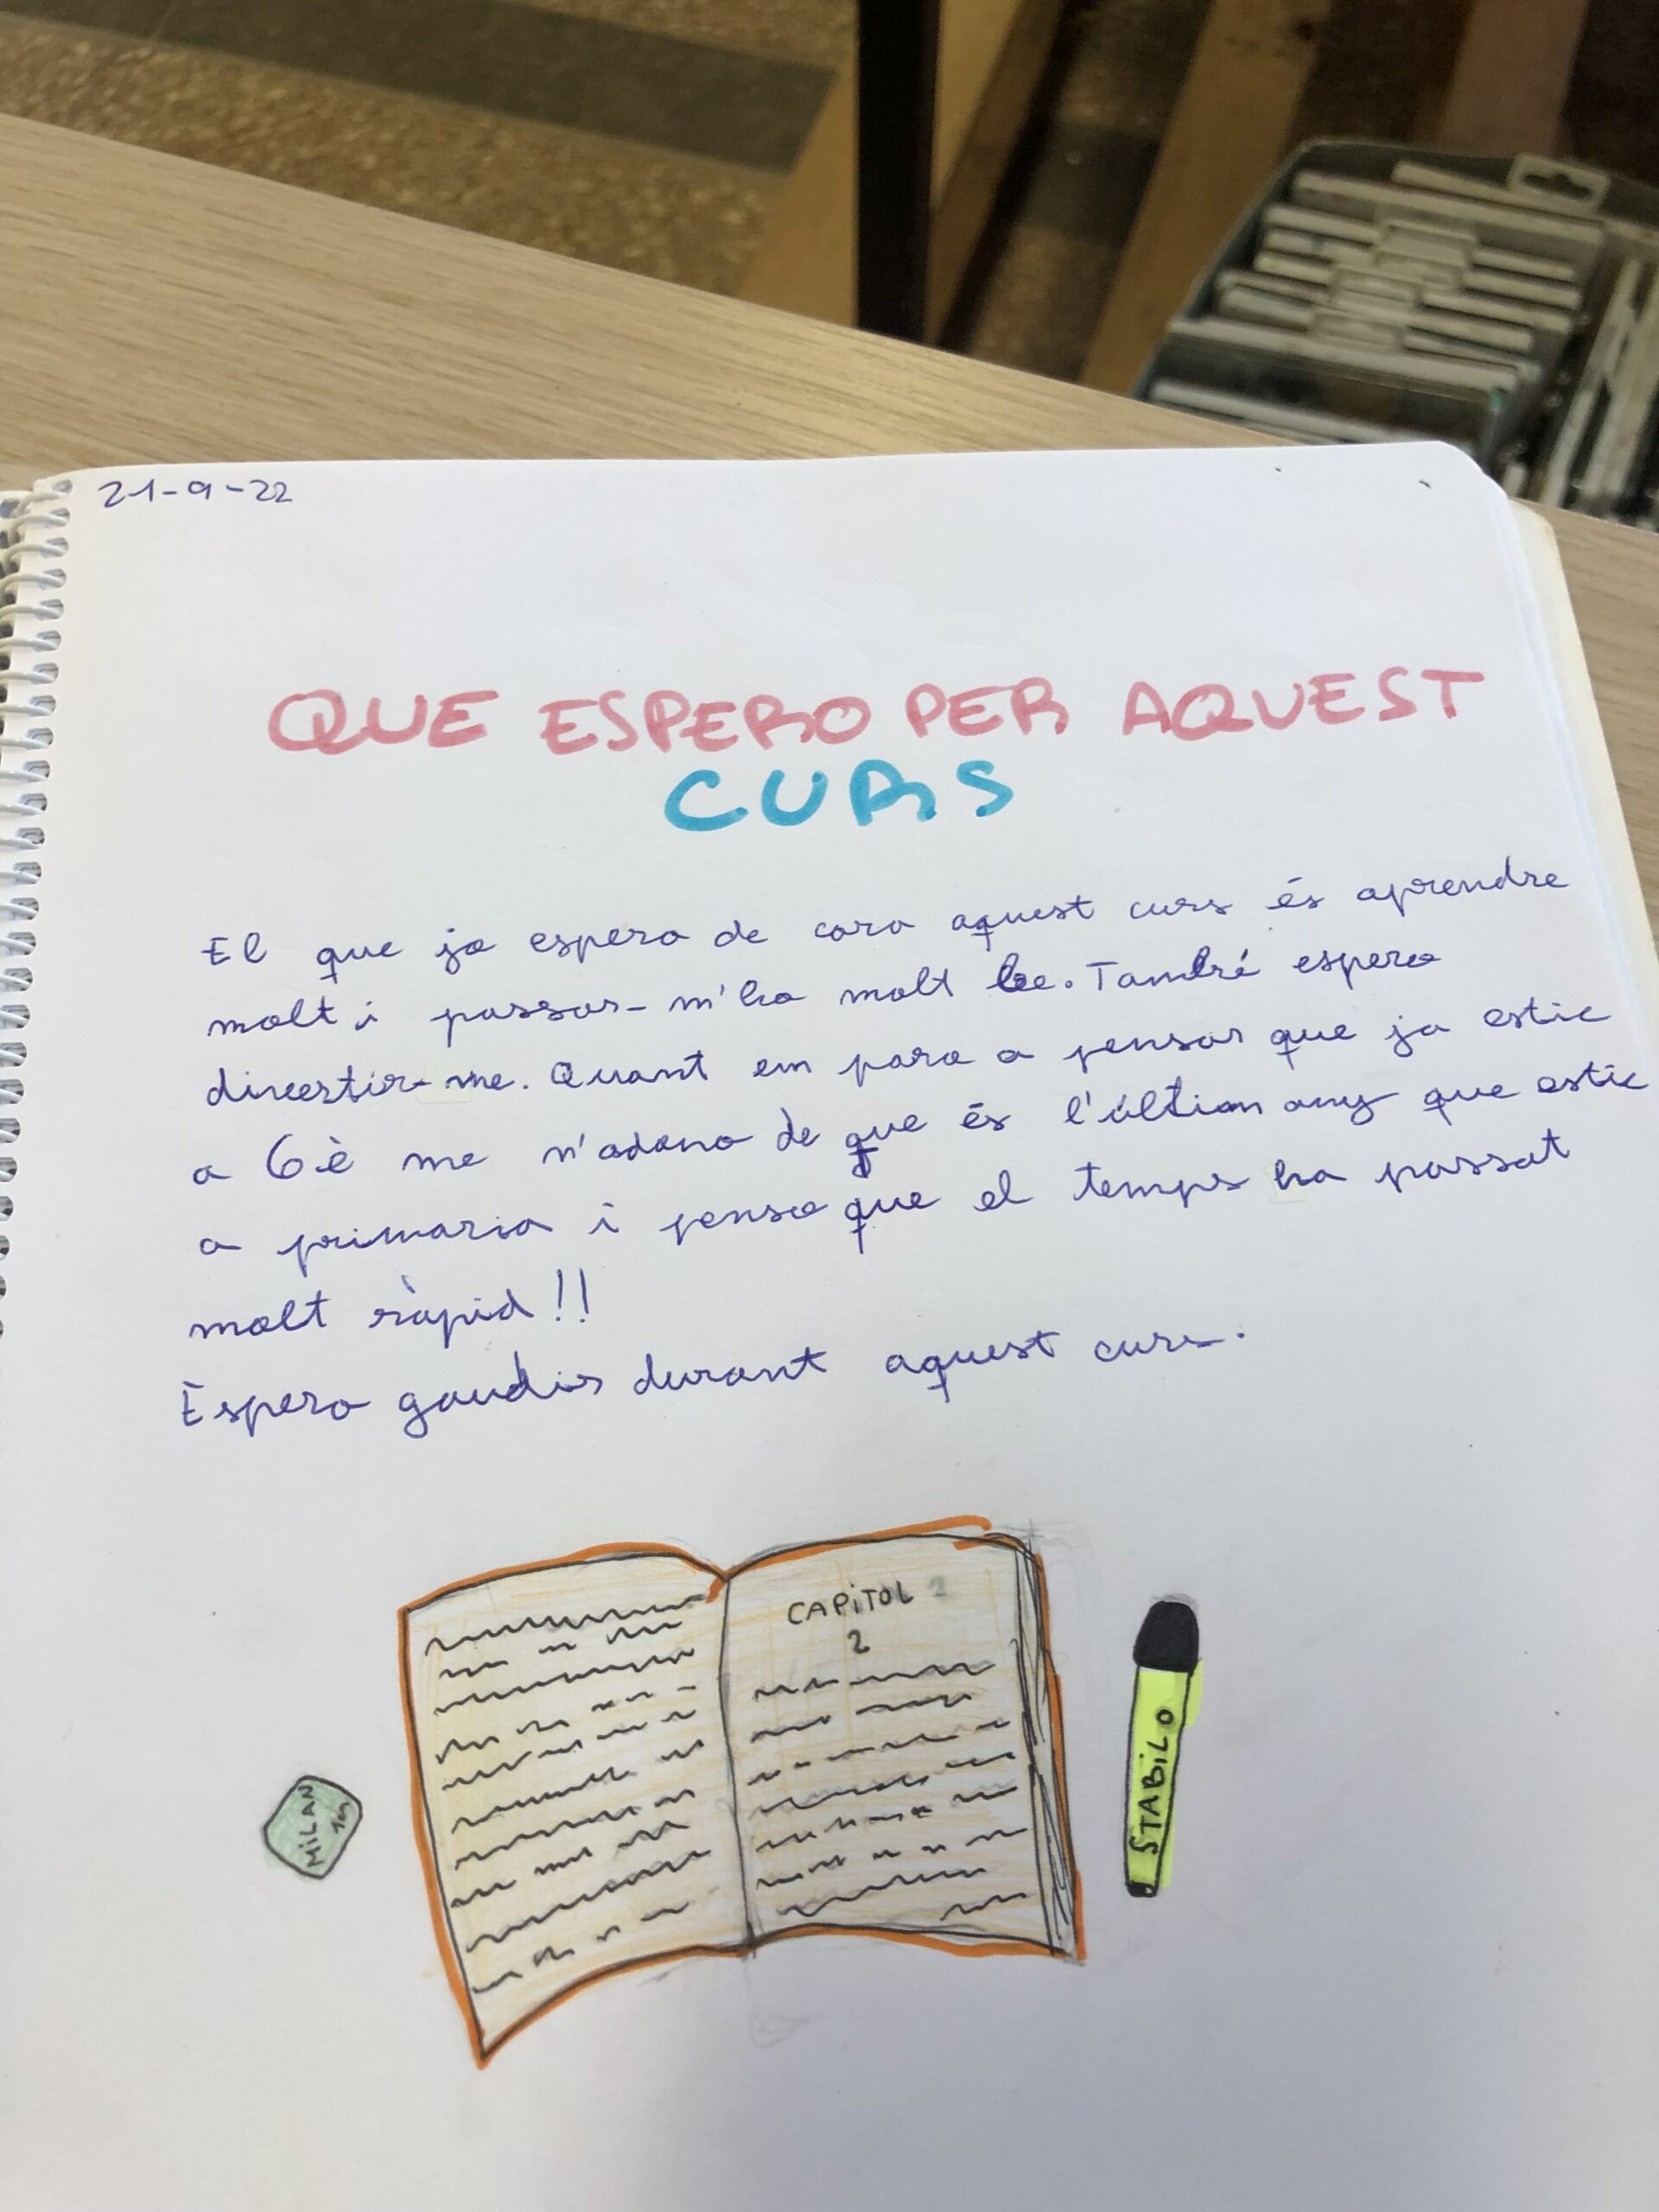 21-9-22
QUE ESPERO PER AQUEST
CURS
El que jo espero de cara aquest curs és aprendre
molt i passar-m'ho molt be. També espero
divertir-me. Quant em paro a pensar que ja estic
a 6è me n'adono de que és l'últim any que estic
a primaria i penso que el temps ha passat
molt ràpid!!
Espero gaudir durant aquest curs.
CAPiTOL
2
MiLAN
STABiLO